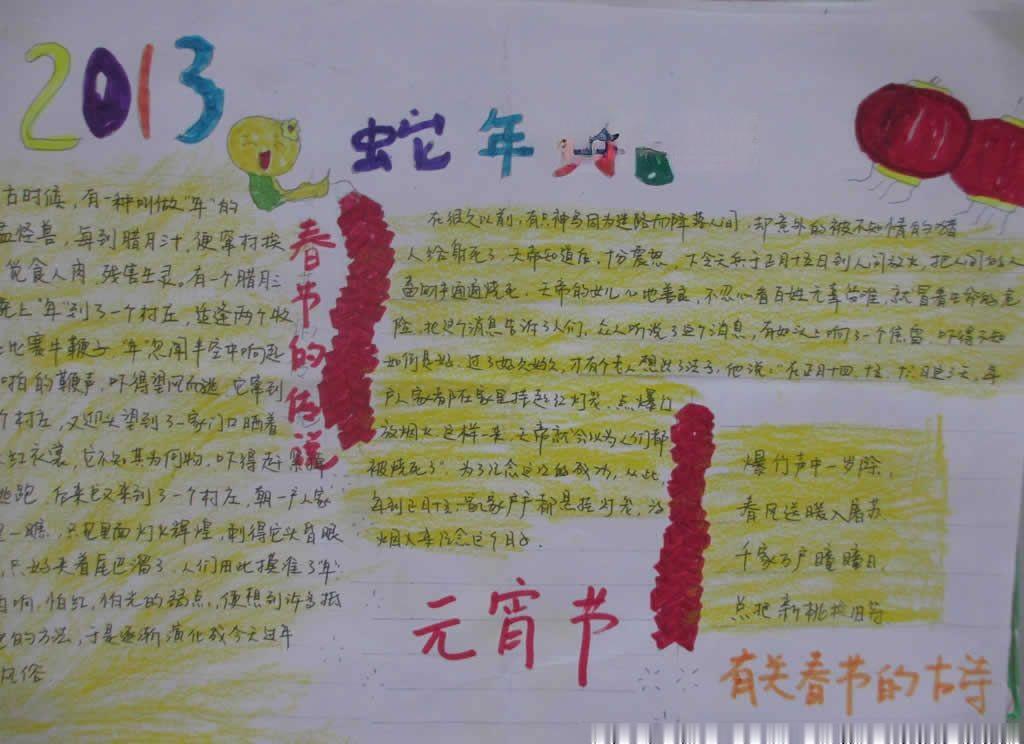 2013
蛇年
古时候，有一种叫做"年"的
怪兽，每到腊月三十，便窜村挨
觅食人肉，残害生灵。有一个腊月三
晚上"年"到了一个村庄，适逢两个牧
比赛牛鞭子"年"忽闻半空中响起
啪的鞭声，吓得望风而逃。它窜到
个村庄，又迎头望到了一家门口晒着
红衣裳，它不知其为何物，吓得赶
逃跑 后来它又来到了一个村庄，朝一户人家
一瞧，只见里面灯火辉煌，刺得它头昏眼
，只好夹着尾巴溜了，人们由此摸准了"年"
响，怕红，怕光的弱点，便想到许多抵
的方法，于是逐渐演化成今天过年
风俗
春节的传说
在很久以前，有只神鸟因为迷路而降落人间，却意外的被不知情的猎
人给射死了 天帝知道后，十分震怒，下令天兵于正月十五日到人间放火，把人间的人
通通烧死。天帝的女儿心地善良，不忍心看百姓无辜，就冒着生命的危
险，把这个消息告诉了人们，众人听说了这个消息，有如头上响了一个焦雷 吓得不知
如何是好，过了好久好久，才有个老人想出了法子，他说："在正月十四、十五、十六日这三天，每
户人家都在家里挂起红灯笼、点爆
放烟火 这样一来，天帝就会以为人们都
被烧死了" 为了纪念这次的成功，从此
每到正月十五，家家户户都悬挂灯笼，放
烟火来纪念这个日子．
元宵节
爆竹声中一岁除，
春风送暖入屠苏
千家万户曈曈日，
点把新桃换旧符
有关春节的古诗